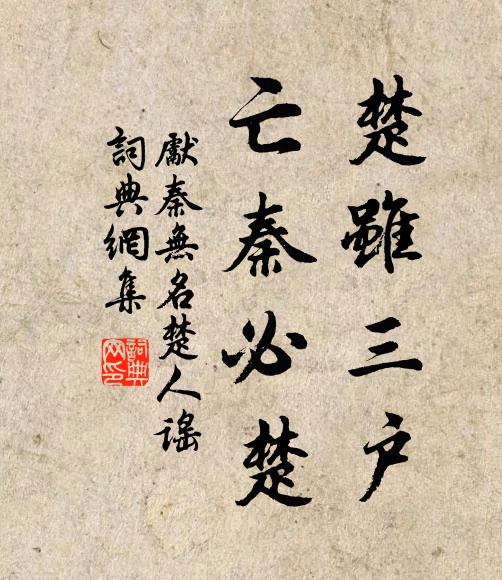 楚雖三户
亡秦必楚
獻秦無名楚人謠
詞典網集
詞典網印